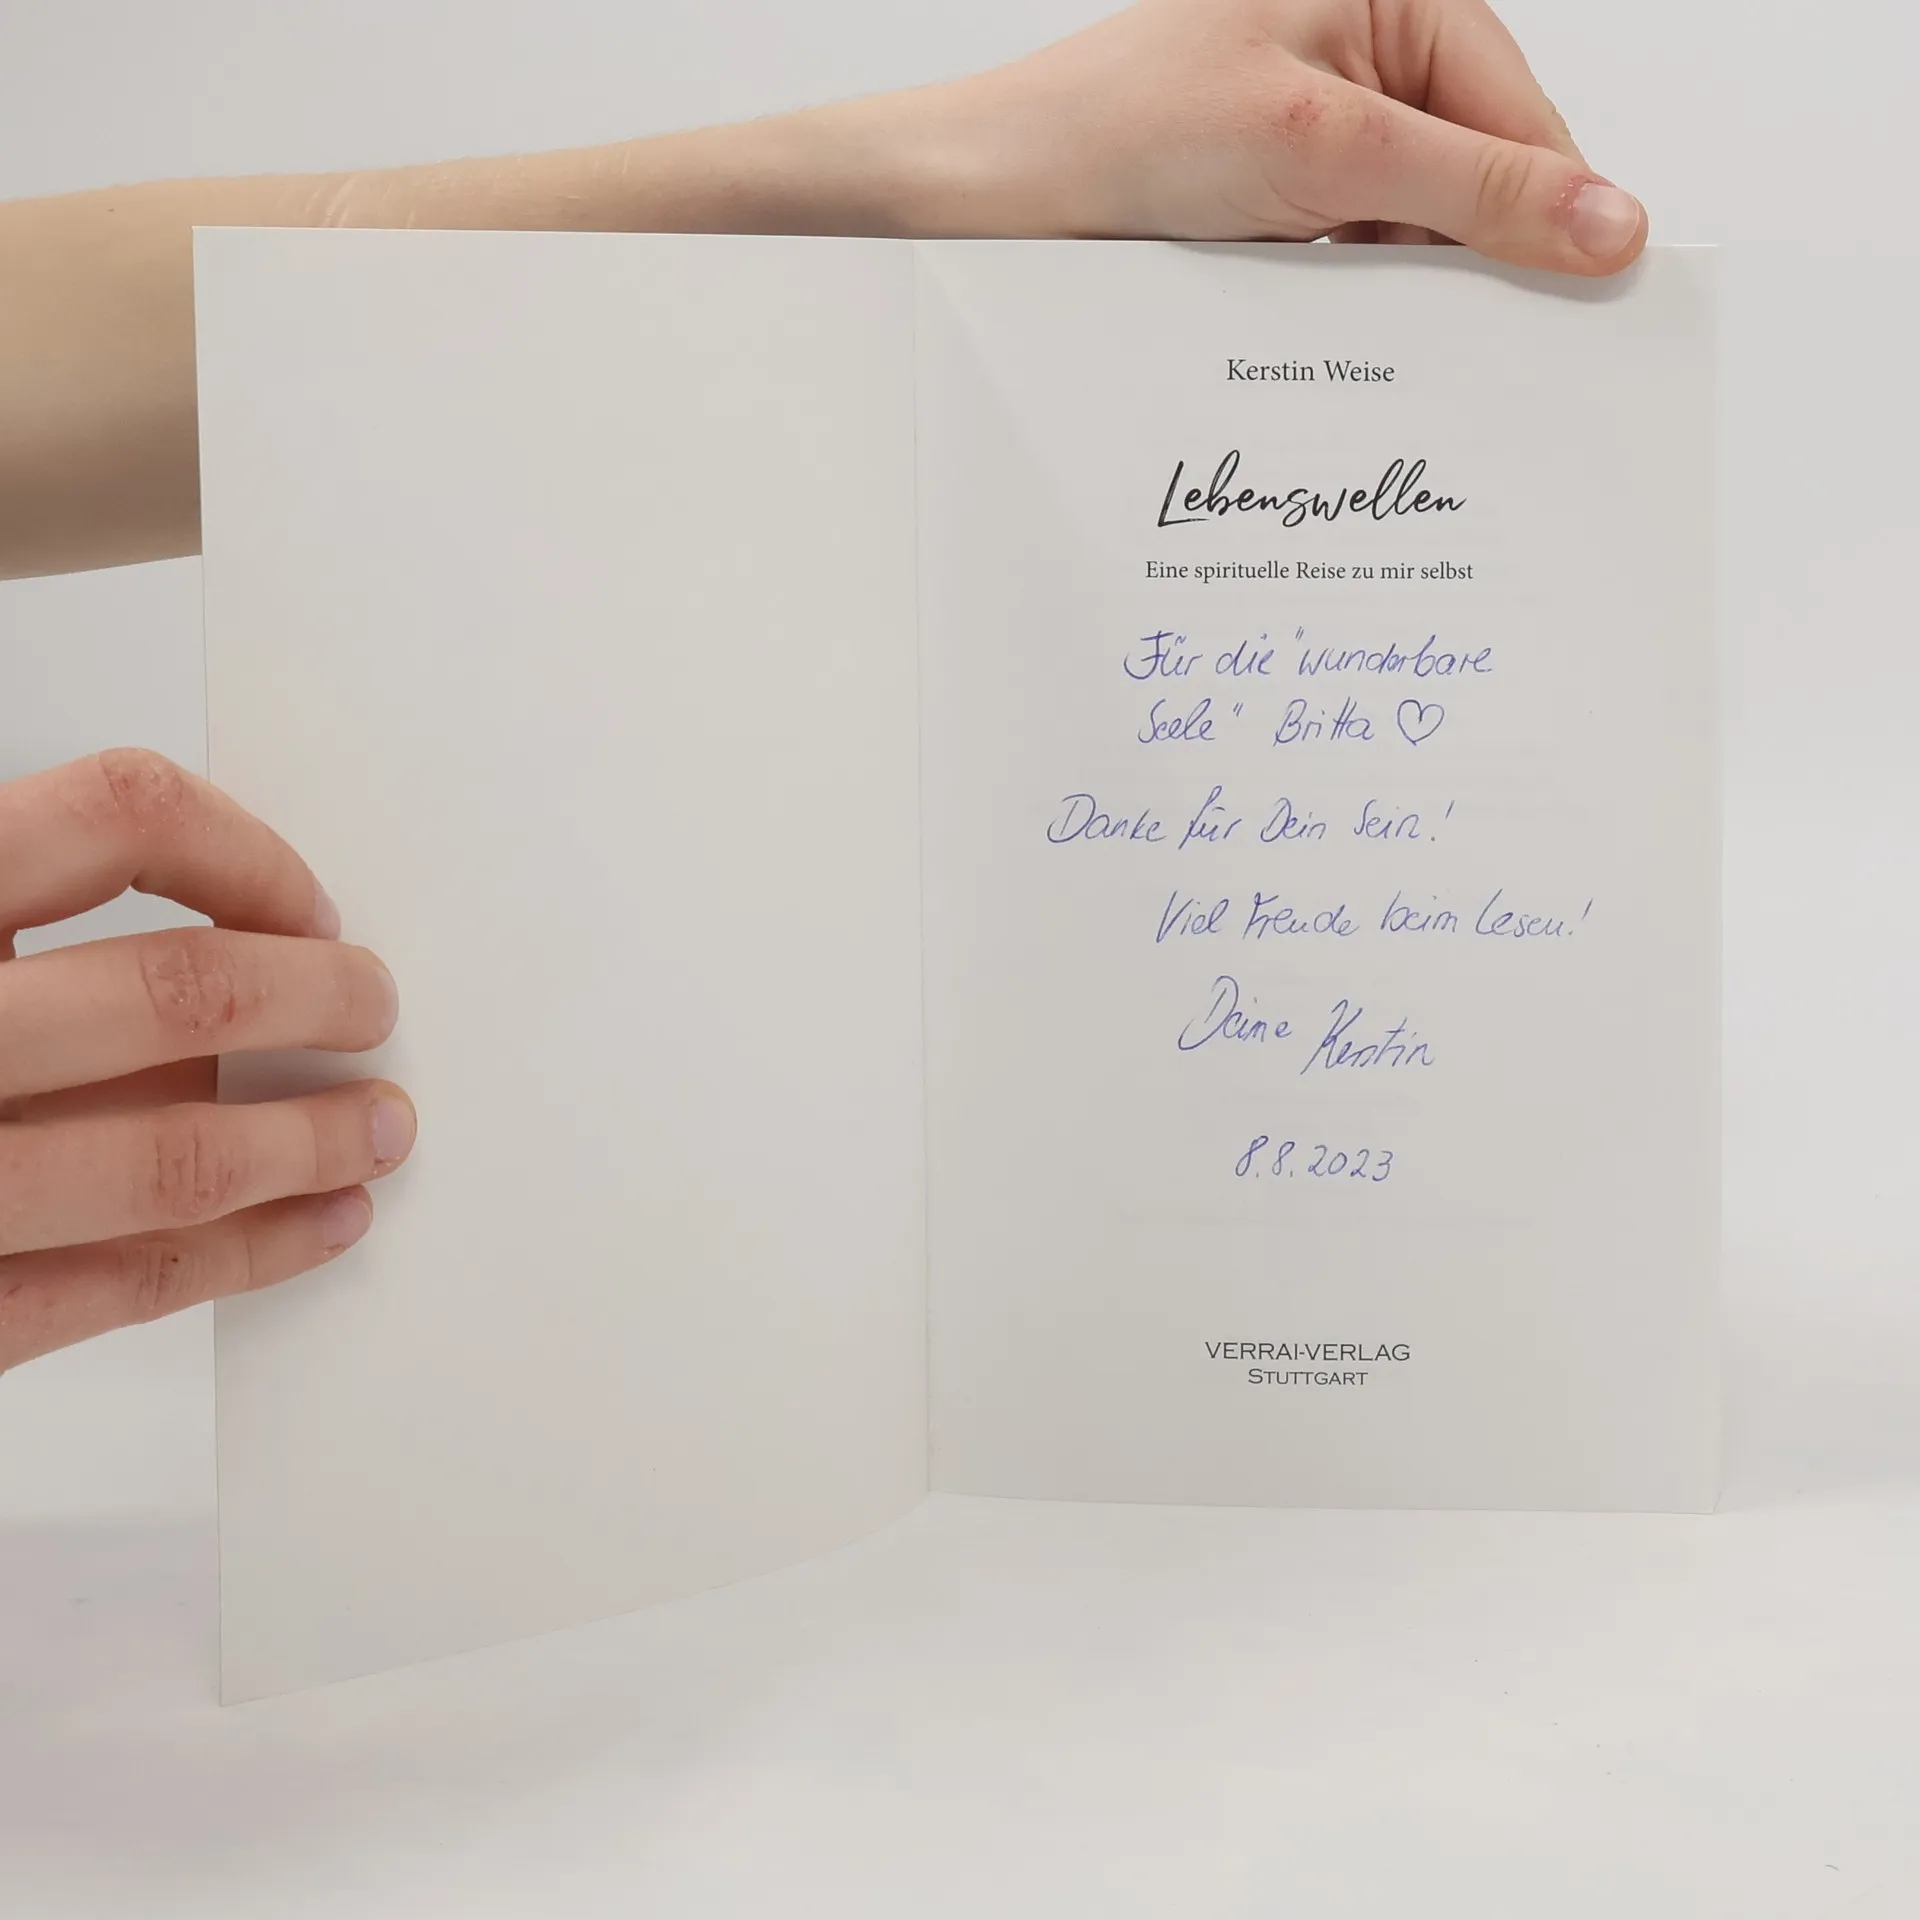 Kerstin Weise
Lebenswellen
Eine spirituelle Reise zu mir selbst
Für die "wunderbare
Seele" Britta ♡
Danke für Dein Sein!
Viel Freude beim Lesen!
Deine Kerstin
8.8.2023
VERRAI-VERLAG
STUTTGART